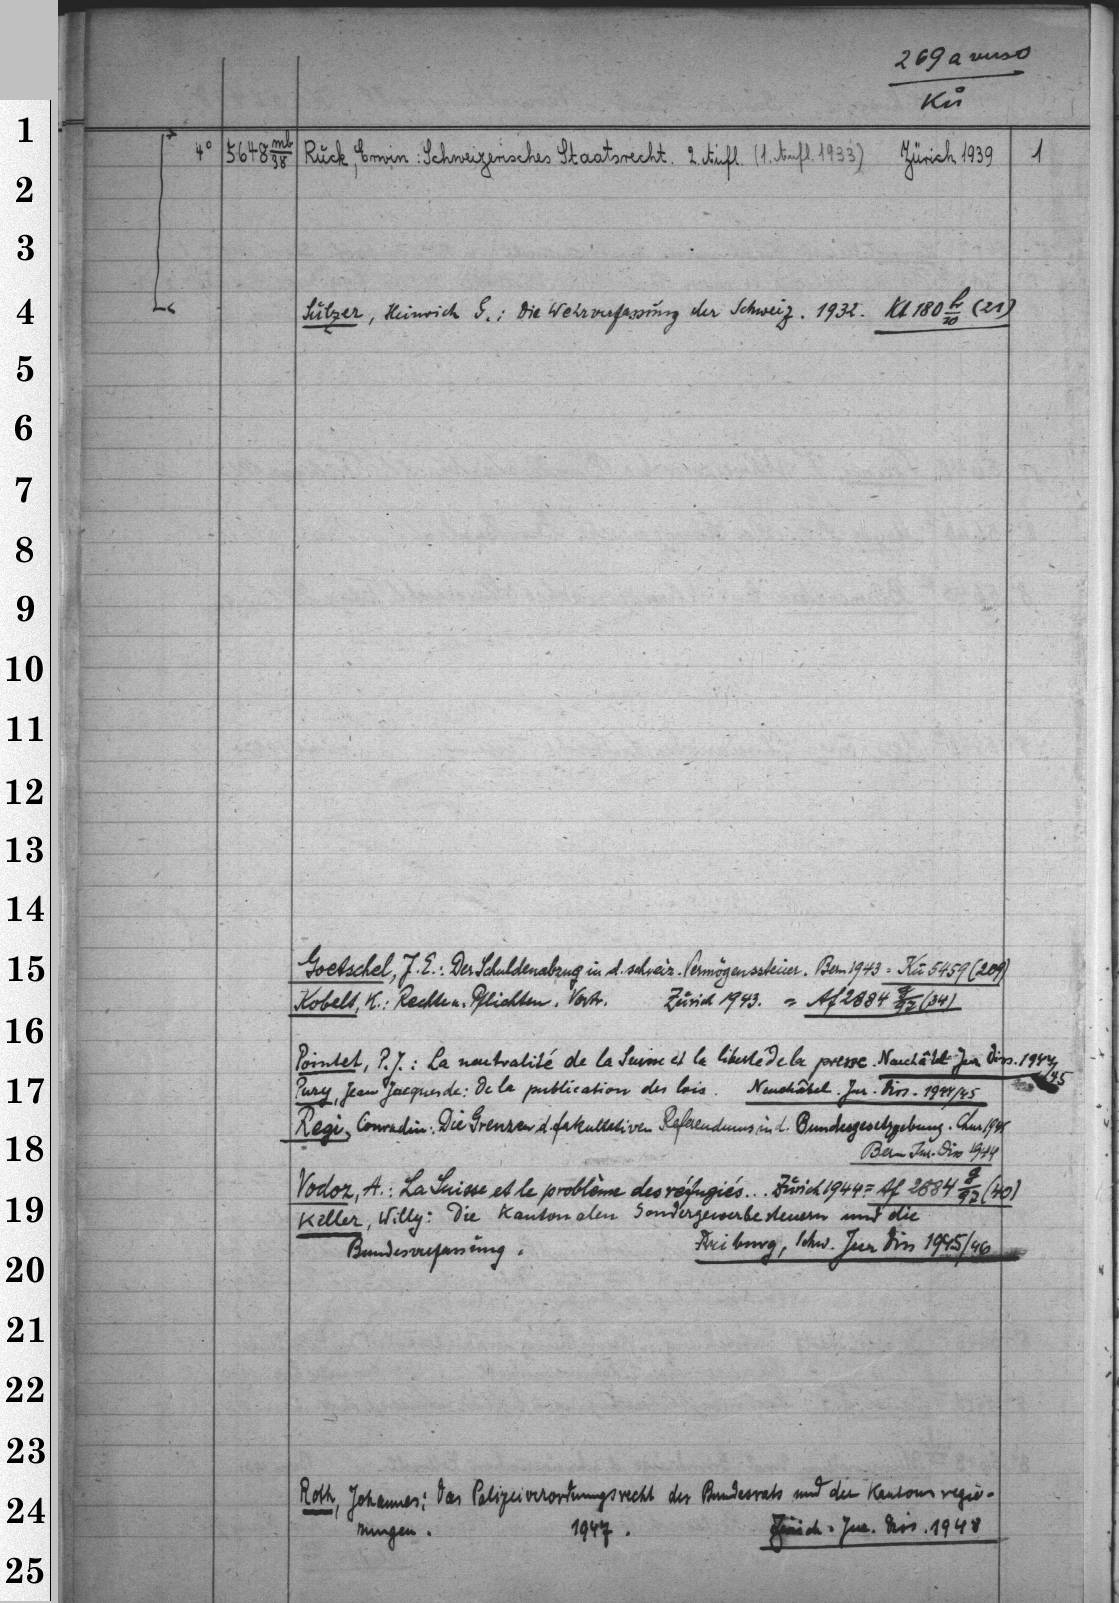 269 a verso
Kü
1
4° 5648 mb/38 Ruck, Erwin: Schweizerisches Staatsrecht. 2. Aufl. (1. Aufl. 1933) Zürich 1939 1
2
3
4
Sulzer, Heinrich G.: Die Wehrverfassung der Schweiz. 1932. Kt 180 b/20 (21)
5
6
7
8
9
10
11
12
13
14
15
Goetschel, J. E.: Der Schuldenabzug in d. schweiz. Vermögenssteuer. Bern 1943 = Kü 5459 (209)
Kobelt, K.: Rechte u. Pflichten. Vortr. Zürich 1943. = Af 2884 q/92 (34)
16
Pointet, P. J.: La neutralité de la Suisse et la liberté de la presse. Neuchâtel Jur. Diss. 1944/45
17
Pury, Jean Jacques de: De la publication des lois. Neuchâtel. Jur. Diss. 1944/45
Regi, Conradin: Die Grenzen d. fakultativen Referendums in d. Bundesgesetzgebung. Chur 1945
18
Bern Jur. Diss 1944
Vodoz, A.: La Suisse et le problème des réfugiés... Zürich 1944 = Af 2884 q/92 (40)
19
Keller, Willy: Die Kantonalen Sondergewerbesteuern und die
Bundesverfassung. Freiburg, Schw. Jur Diss 1945/46
20
21
22
23
24
Roth, Johannes: Das Polizeiverordnungsrecht des Bundesrats und der Kantonsregie-
rungen. 1947. Zürich. Jur. Diss. 1948
25